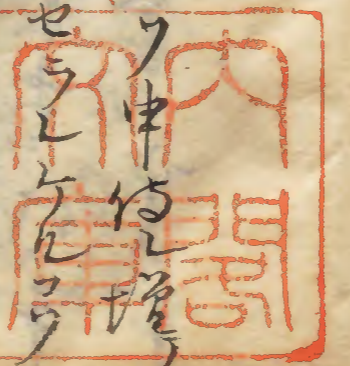 ヲ申侍し増ラ
セラレケルコソ
内閣
文庫